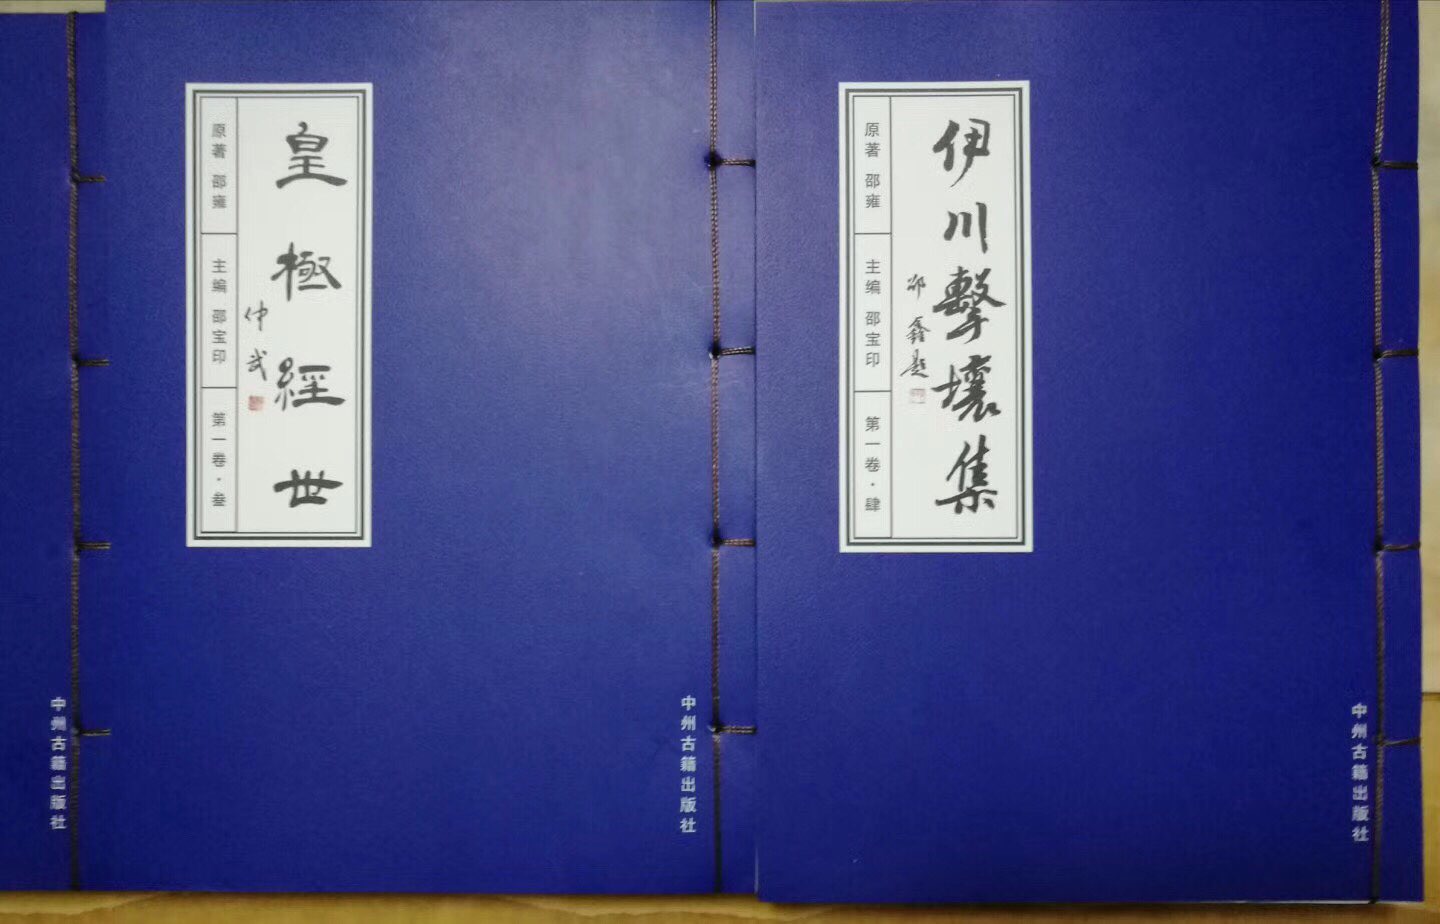 中州古籍出版社
皇極經世
仲武
原著 邵雍
主编 邵宝印
第一卷·叁
中州古籍出版社
伊川擊壤集
邵鑫题
原著 邵雍
主编 邵宝印
第一卷·肆
中州古籍出版社